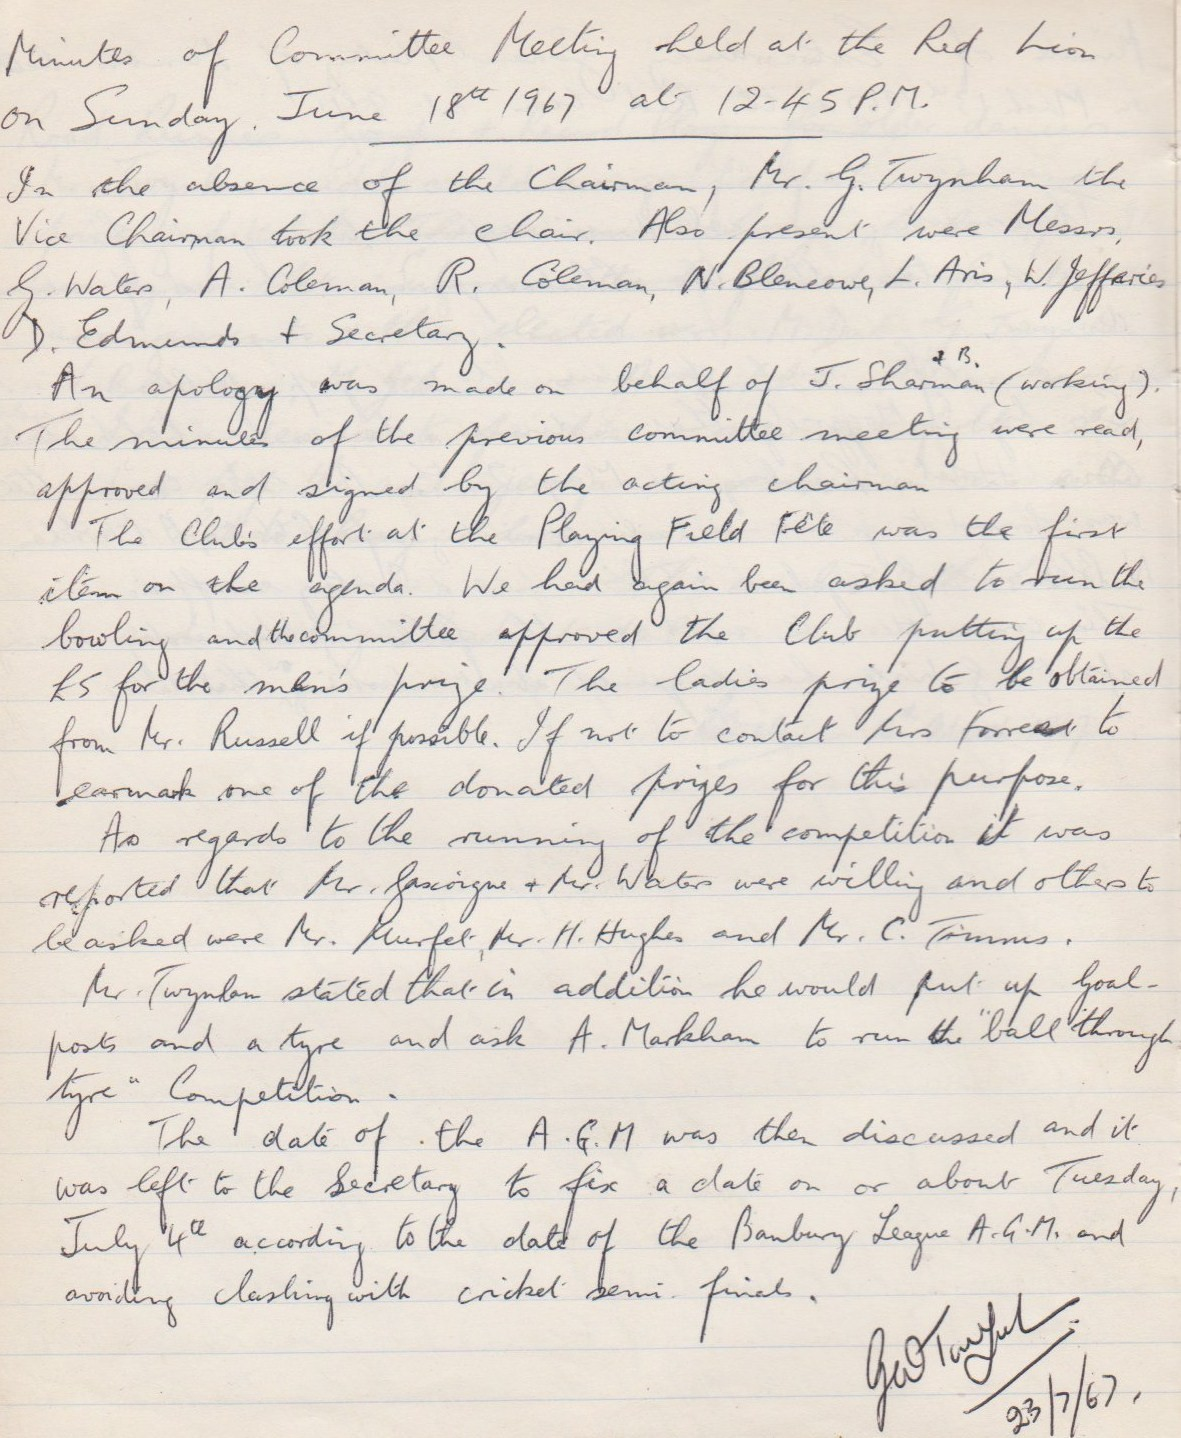 Minutes of Committee Meeting held at the Red Lion
on Sunday. June 18th 1967 at 12-45 P.M.
In the absence of the Chairman, Mr. G. Twynham the
Vice Chairman took the chair. Also present were Messrs.
G. Waters, A. Coleman, R. Coleman, N. Blencowe, L. Aris, W. Jeffaries
D. Edmunds + Secretary.
An apology was made on behalf of J. + B. Sharman (working).
The minutes of the previous committee meeting were read,
approved and signed by the acting chairman
The Club's effort at the Playing Field Fête was the first
item on the agenda. We had again been asked to run the
bowling and the committee approved the Club putting up the
£5 for the men's prize. The ladies prize to be obtained
from Mr. Russell if possible. If not to contact Mrs Forrest to
earmark one of the donated prizes for this purpose.
As regards to the running of the competition it was
reported that Mr. Gascoigne + Mr. Waters were willing and others to
be asked were Mr. Murfet, Mr. H. Hughes and Mr. C. Timms.
Mr. Twynham stated that in addition he would put up Goal-
posts and a tyre and ask A. Markham to run the "ball through
tyre" Competition.
The date of the A.G.M was then discussed and it
was left to the Secretary to fix a date on or about Tuesday,
July 4th according to the date of the Banbury League A.G.M. and
avoiding clashing with cricket semi-finals.
23/7/67.